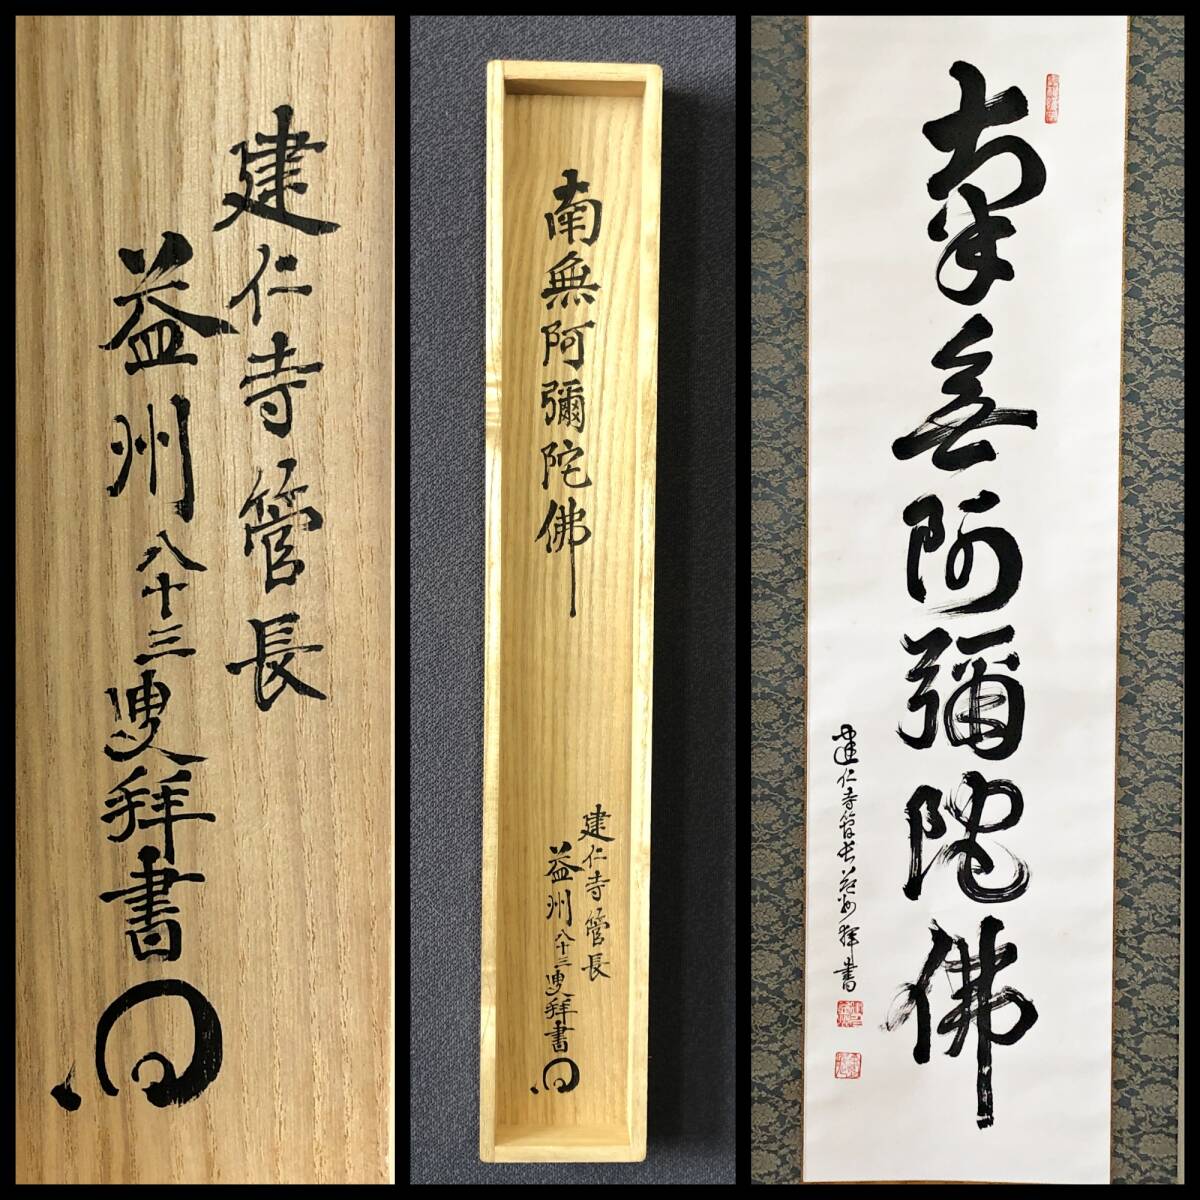 建仁寺管長
益州八十三叟拝書
南無阿彌陀佛
建仁寺管長
益州八十三叟拝書
南無阿彌陀佛
建仁寺管長益州拝書